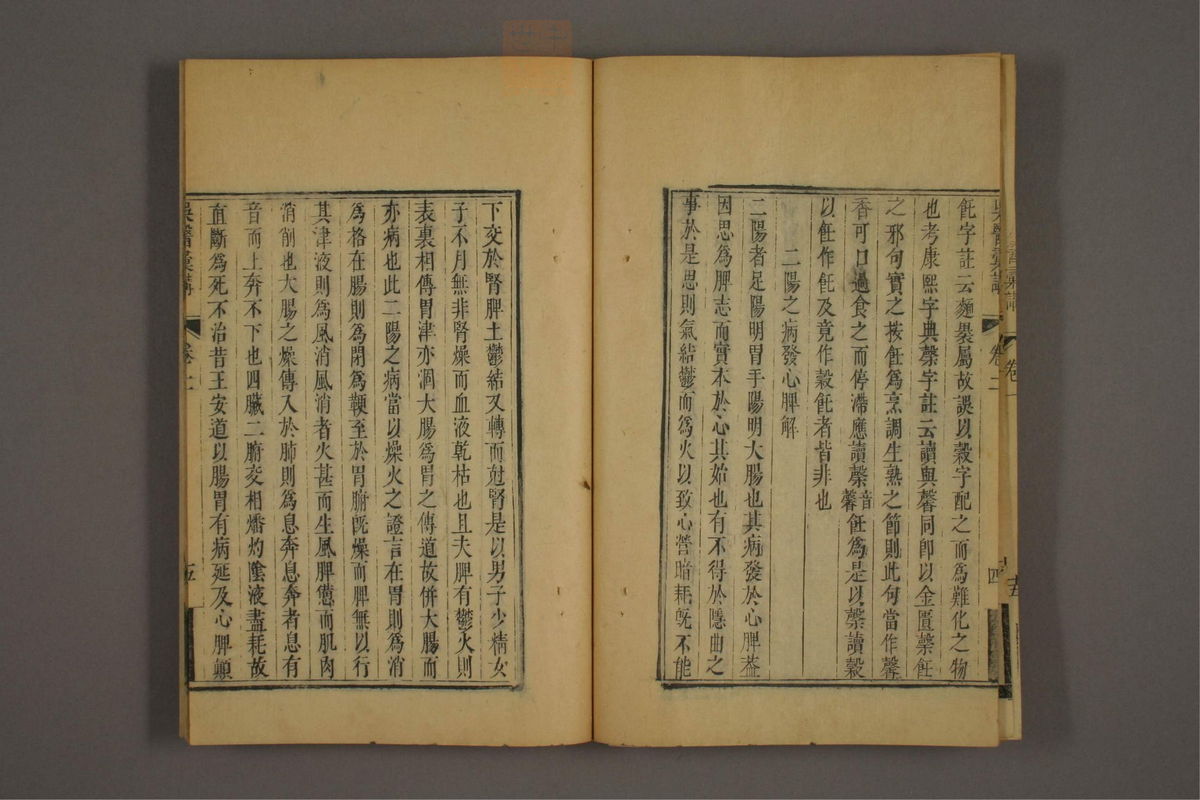 飪字註云麵褁屬故誤以穀字配之而爲難化之物
也考康熙字典䅽字註云讀與馨同卽以金匱䅽飪
之邪句實之按飪爲烹調生熟之節則此句當作馨
香可口過食之而停滯應讀䅽音馨飪爲是以䅽讀穀
以飪作飥及竟作穀飥者皆非也
二陽之病發心脾解
二陽者足陽明胃手陽明大腸也其病發於心脾蓋
因思爲脾志而實本於心其始也有不得於隱曲之
事於是思則氣結鬱而爲火以致心營暗耗旣不能
吳醫彙講
卷二
四
下交於腎脾土鬱結又轉而尅腎是以男子少精女
子不月無非腎燥而血液乾枯也且夫脾有鬱火則
表裏相傳胃津亦凅大腸爲胃之傳道故併大腸而
亦病也此二陽之病當以燥火之證言在胃則爲消
爲格在腸則爲閉爲鞕至於胃腑旣燥而脾無以行
其津液則爲風消風消者火甚而生風脾憊而肌肉
消削也大腸之燥傳入於肺則爲息奔息奔者息有
音而上奔不下也四臟二腑交相燔灼陰液盡耗故
直斷爲死不治昔王安道以腸胃有病延及心脾顛
吳醫彙講
卷二
五